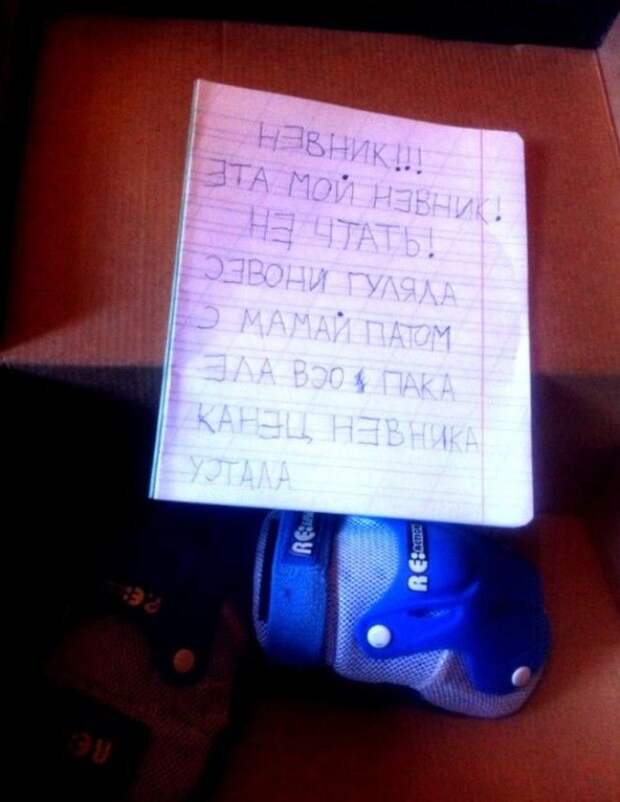 НЭВНИК!!!
ЭТА МОЙ НЭВНИК!
НЭ ЧТАТЬ!
ЭЭВОНИ ГУЛЯЛА
Э МАМАЙ ПАТОМ
ЭЛА ВЭО ПАКА
КАНЭЦ НЭВНИКА
УЭТАЛА
RE:
RE:ACTION
RE:
RE: